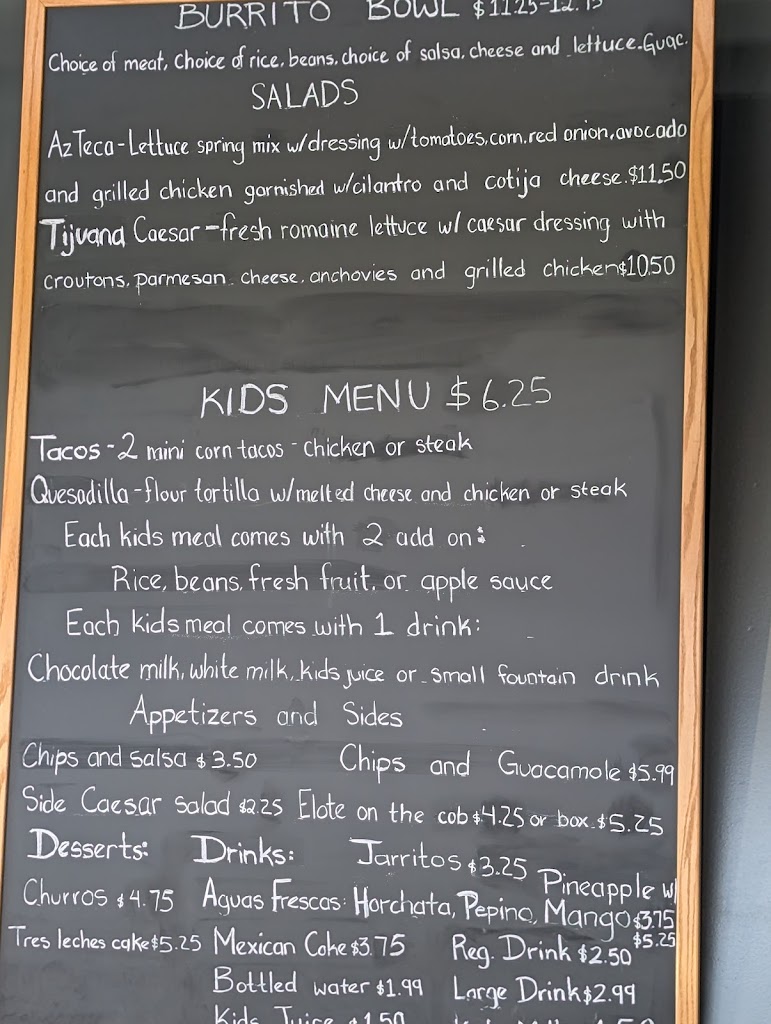 BURRITO BOWL $11.25-12.75
Choice of meat, Choice of rice, beans, choice of salsa, cheese and lettuce. Guac.
SALADS
AzTeca-Lettuce spring mix w/dressing w/tomatoes, corn, red onion, avocado
and grilled chicken garnished w/cilantro and cotija cheese. $11.50
Tijuana Caesar-fresh romaine lettuce w/ caesar dressing with
croutons, parmesan cheese, anchovies and grilled chicken $10.50
KIDS MENU $6.25
Tacos-2 mini corn tacos - chicken or steak
Quesadilla-flour tortilla w/melted cheese and chicken or steak
Each kids meal comes with 2 add on:
Rice, beans, fresh fruit, or apple sauce
Each kids meal comes with 1 drink:
Chocolate milk, white milk, kids juice or small fountain drink
Appetizers and Sides
Chips and salsa $3.50 Chips and Guacamole $5.99
Side Caesar Salad $2.25 Elote on the cob $4.25 or box $5.25
Desserts: Drinks: Jarritos $3.25
Churros $4.75 Aguas Frescas: Horchata, Pepino, Mango $3.75 Pineapple w/ $5.25
Tres leches cake $5.25 Mexican Coke $3.75 Reg. Drink $2.50
Bottled water $1.99 Large Drink $2.99
Kids Juice $1.50